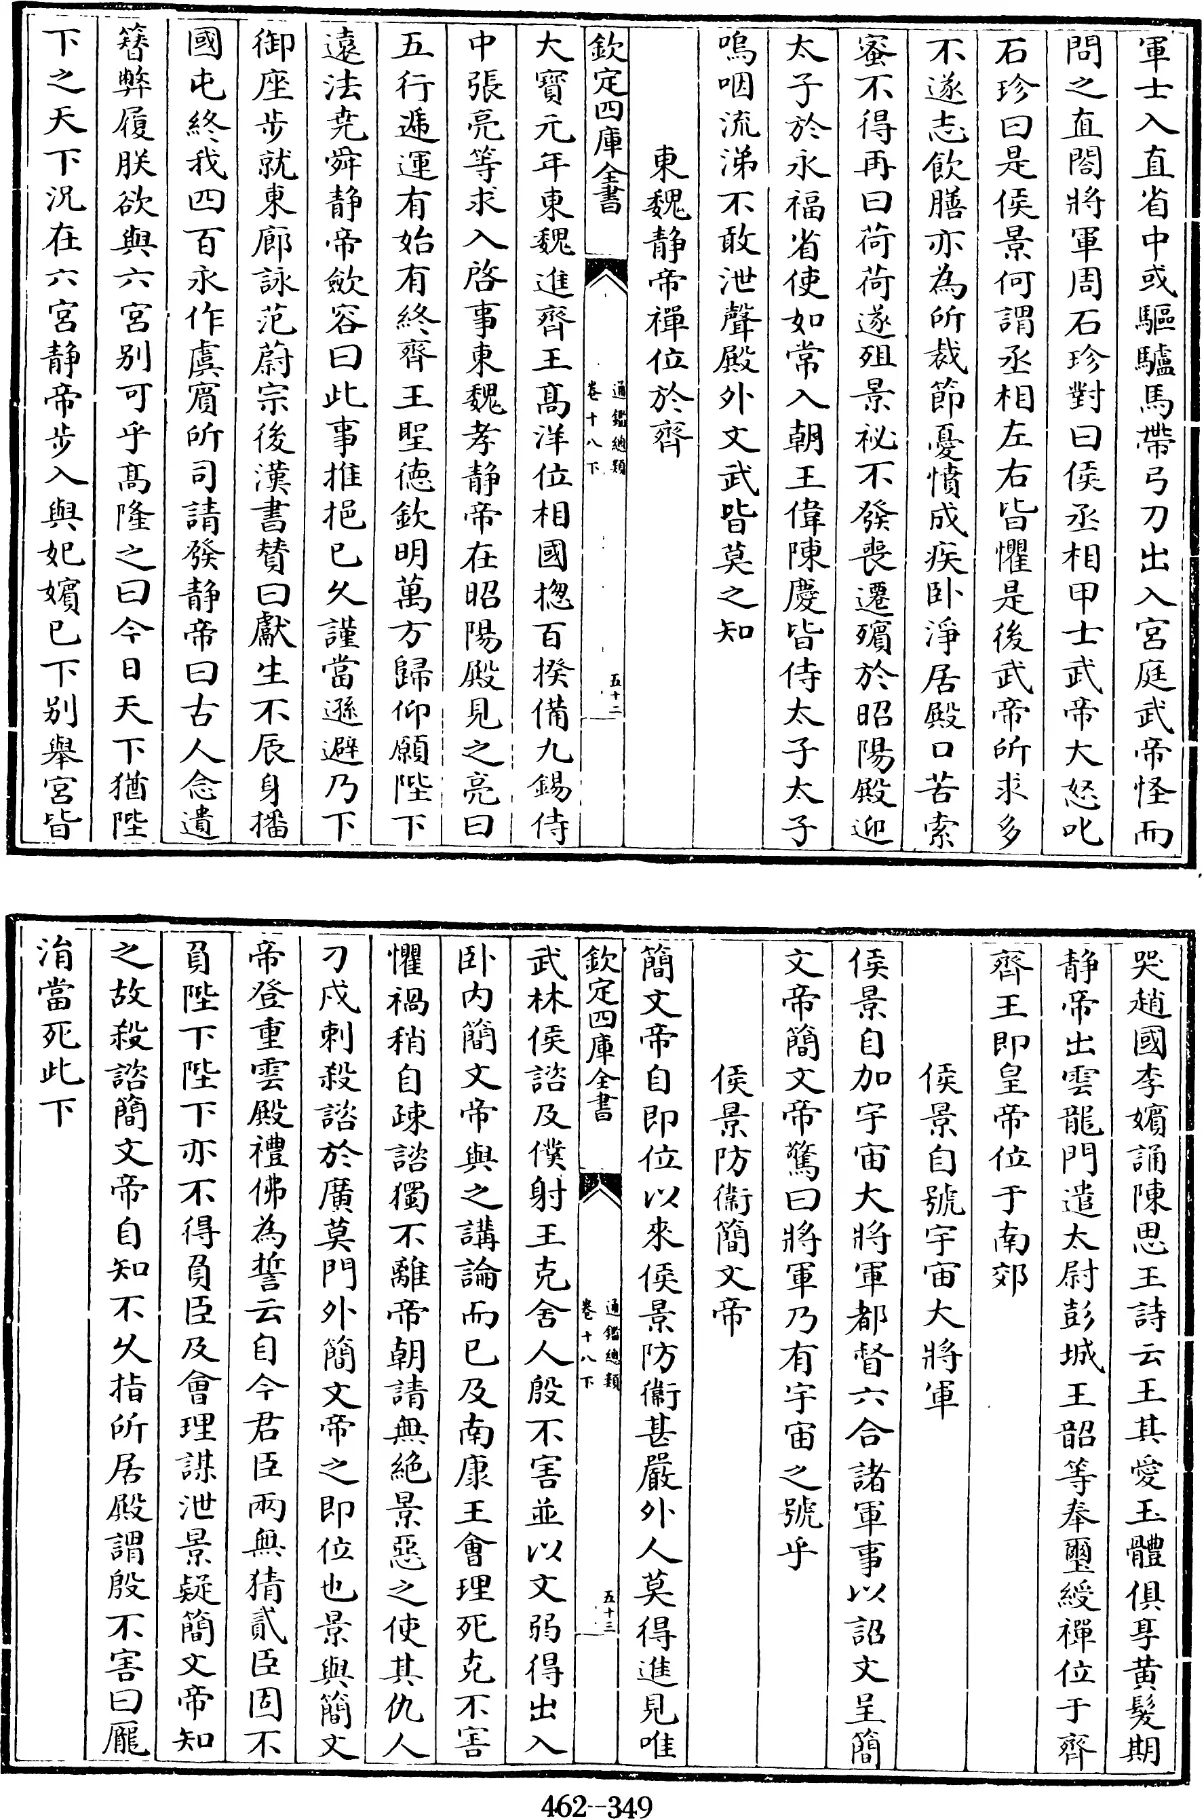 軍士入直省中或驅驢馬帶弓刀出入宮庭武帝怪而
問之直閤將軍周石珍對曰侯丞相甲士武帝大怒叱
石珍曰是侯景何謂丞相左右皆懼是後武帝所求多
不遂志飲膳亦為所裁節憂憤成疾卧淨居殿口苦索
蜜不得再曰荷荷遂殂景祕不發喪遷殯於昭陽殿迎
太子於永福省使如常入朝王偉陳慶皆侍太子太子
嗚咽流涕不敢泄聲殿外文武皆莫之知
東魏静帝禪位於齊
欽定四庫全書
通鑑總類
卷十八下
五十二
大寶元年東魏進齊王高洋位相國揔百揆備九錫侍
中張亮等求入啓事東魏孝静帝在昭陽殿見之亮曰
五行遞運有始有終齊王聖德欽明萬方歸仰願陛下
遠法堯舜静帝斂容曰此事推挹已久謹當遜避乃下
御座步就東廊詠范蔚宗後漢書賛曰獻生不辰身播
國屯終我四百永作虞賓所司請發静帝曰古人念遺
簪弊履朕欲與六宮别可乎高隆之曰今日天下猶陛
下之天下況在六宮静帝步入與妃嬪已下别舉宮皆
哭趙國李嬪誦陳思王詩云王其愛玉體俱享黄髮期
静帝出雲龍門遣太尉彭城王韶等奉璽綬禪位于齊
齊王即皇帝位于南郊
侯景自號宇宙大將軍
侯景自加宇宙大將軍都督六合諸軍事以詔文呈簡
文帝簡文帝驚曰將軍乃有宇宙之號乎
侯景防衞簡文帝
簡文帝自即位以來侯景防衞甚嚴外人莫得進見唯
欽定四庫全書
通鑑總類
卷十八下
五十三
武林侯諮及僕射王克舍人殷不害並以文弱得出入
卧内簡文帝與之講論而已及南康王會理死克不害
懼禍稍自疎諮獨不離帝朝請無絶景惡之使其仇人
刁戍刺殺諮於廣莫門外簡文帝之即位也景與簡文
帝登重雲殿禮佛為誓云自今君臣兩無猜貳臣固不
負陛下陛下亦不得負臣及會理謀泄景疑簡文帝知
之故殺諮簡文帝自知不久指所居殿謂殷不害曰龎
涓當死此下
462--349